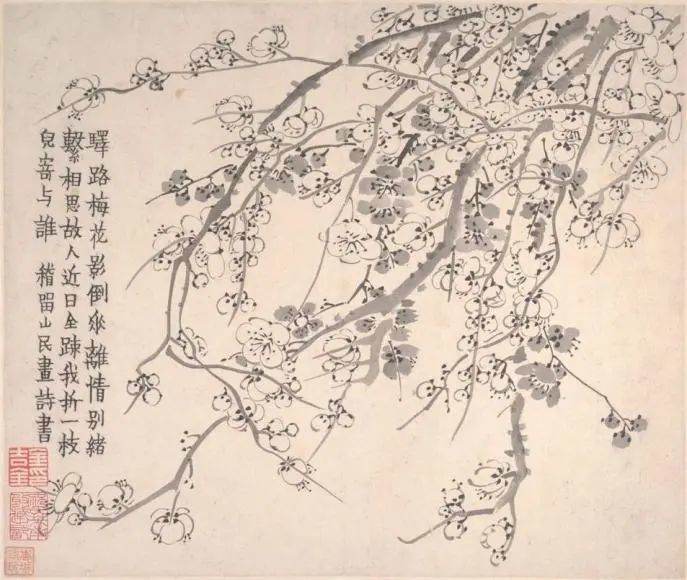 驛路梅花影倒垂離情別緒
繫相思故人近日全疎我折一枝
兒寄与誰 稽留山民畫詩書
金印
吉金